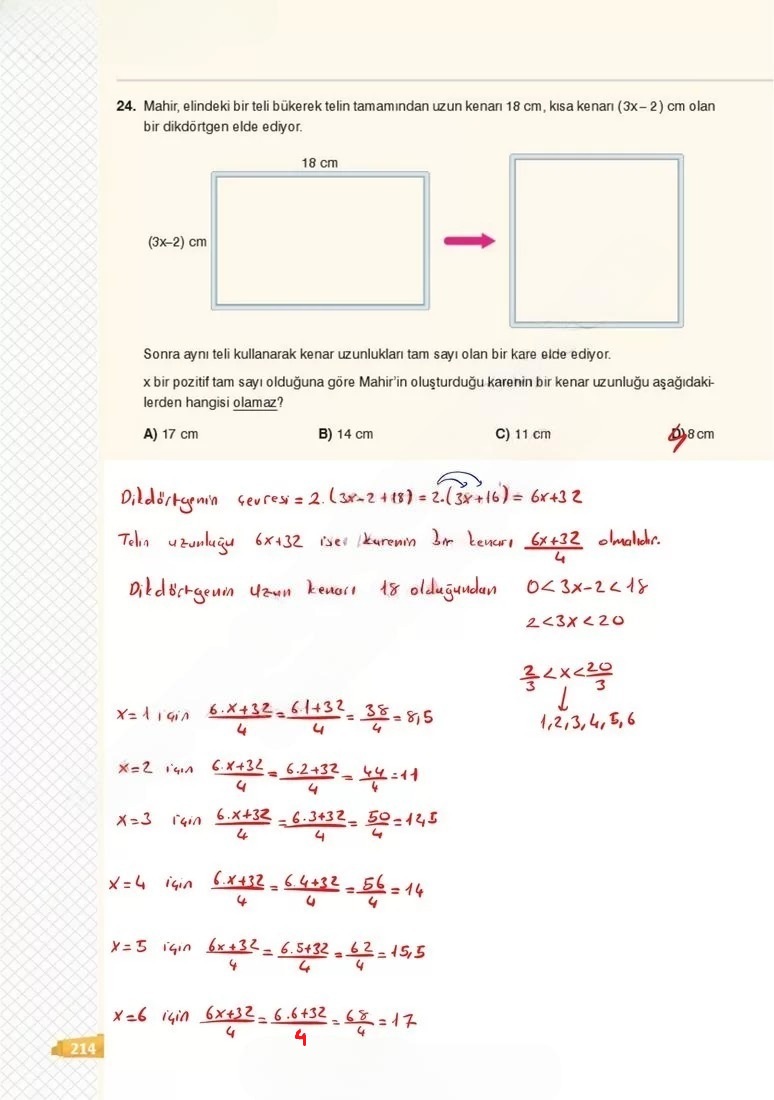 24. Mahir, elindeki bir teli bükerek telin tamamından uzun kenarı 18 cm, kısa kenarı (3x – 2) cm olan
bir dikdörtgen elde ediyor.
18 cm
(3x–2) cm
Sonra aynı teli kullanarak kenar uzunlukları tam sayı olan bir kare elde ediyor.
x bir pozitif tam sayı olduğuna göre Mahir'in oluşturduğu karenin bir kenar uzunluğu aşağıdaki-
lerden hangisi olamaz?
A) 17 cm B) 14 cm C) 11 cm D) 8 cm
Dikdörtgenin çevresi = 2.(3x-2+18) = 2.(3x+16) = 6x+32
Telin uzunluğu 6x+32 ise karenin bir kenarı 6x+32/4 olmalıdır.
Dikdörtgenin uzun kenarı 18 olduğundan 0<3x-2<18
2<3x<20
2/3<x<20/3
↓
1,2,3,4,5,6
x=1 için 6.x+32/4 = 6.1+32/4 = 38/4 = 8,5
x=2 için 6.x+32/4 = 6.2+32/4 = 44/4 = 11
x=3 için 6.x+32/4 = 6.3+32/4 = 50/4 = 12,5
x=4 için 6.x+32/4 = 6.4+32/4 = 56/4 = 14
x=5 için 6x+32/4 = 6.5+32/4 = 62/4 = 15,5
x=6 için 6x+32/4 = 6.6+32/4 = 68/4 = 17
214